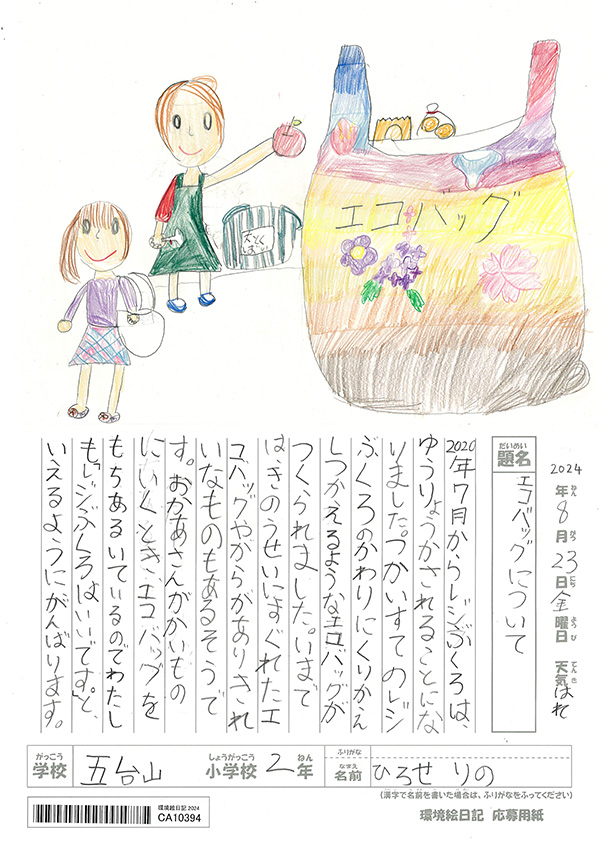 エコバッグ
2024年8月23日金曜日 天気はれ
ねん がつ にち ようび てんき
だいめい
題名 エコバッグについて
2020年7月からレジぶくろは、
ゆうりょうかされることにな
りました。つかいすてのレジ
ぶくろのかわりにくりかえ
しつかえるようなエコバッグが
つくられました。いまで
はきのうせいにすぐれたエ
コバッグやがらがありきれ
いなものもあるそうで
す。おかあさんがかいもの
にいくとき、エコバッグを
もちあるいているのでわたし
も「レジぶくろはいいです。」と、
いえるようにがんばります。
がっこう しょうがっこう ねん ふりがな なまえ
学校 五台山 小学校 2年 名前 ひろせ りの
(漢字で名前を書いた場合は、ふりがなをふってください)
環境絵日記 2024
CA10394
環境絵日記 応募用紙